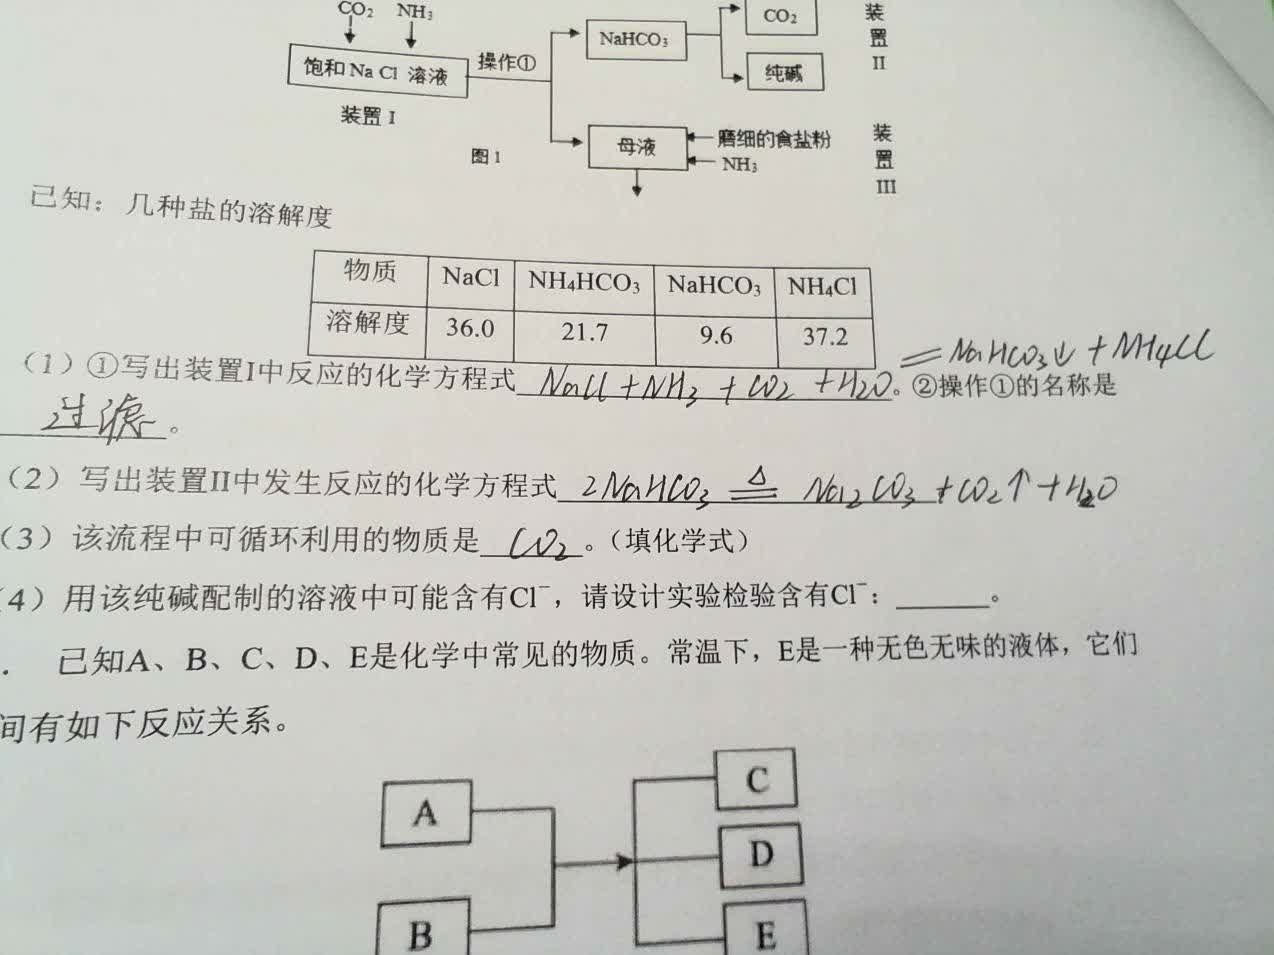 CO₂ NH₃
饱和NaCl 溶液
操作①
NaHCO₃
CO₂
纯碱
装置II
装置I
图1
母液
磨细的食盐粉
NH₃
装置III
已知：几种盐的溶解度
物质 NaCl NH₄HCO₃ NaHCO₃ NH₄Cl
溶解度 36.0 21.7 9.6 37.2
=NaHCO₃↓+NH₄Cl
（1）①写出装置I中反应的化学方程式 NaCl+NH₃+CO₂+H₂O。②操作①的名称是
过滤。
（2）写出装置II中发生反应的化学方程式 2NaHCO₃ ≜ Na₂CO₃+CO₂↑+H₂O
（3）该流程中可循环利用的物质是 CO₂。（填化学式）
4）用该纯碱配制的溶液中可能含有Cl⁻，请设计实验检验含有Cl⁻：______。
． 已知A、B、C、D、E是化学中常见的物质。常温下，E是一种无色无味的液体，它们
间有如下反应关系。
A
B
C
D
E